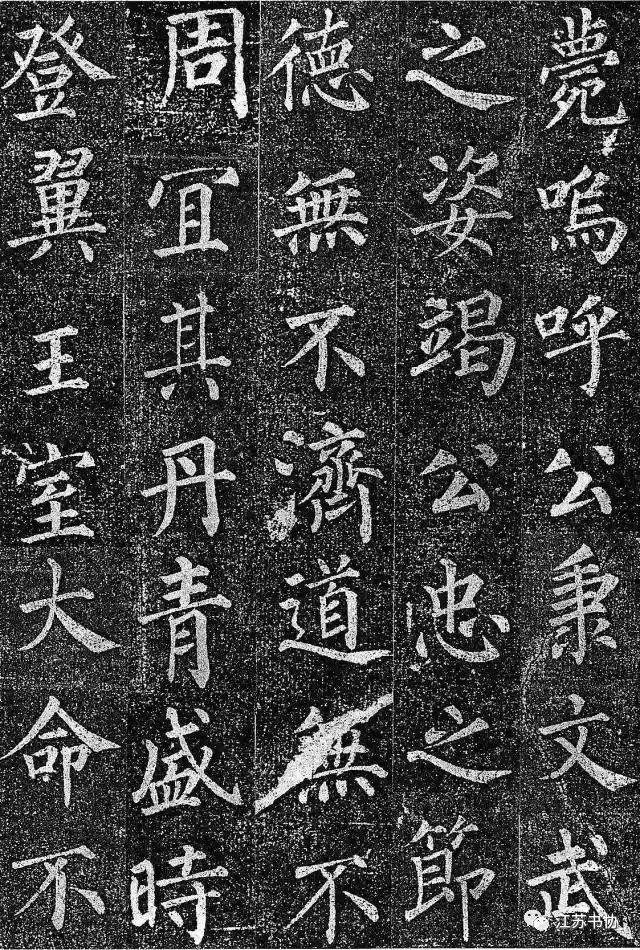 薨嗚呼公秉文武
之姿竭公忠之節
德無不濟道無不
周宜其丹青盛時
登翼王室大命不
江苏书协